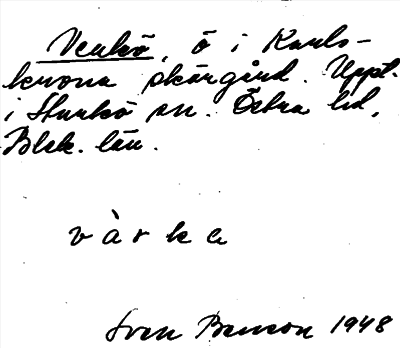 Verkö, ö i Karls-
krona skärgård. Uppt.
i Sturkö sn. Östra hd,
Blek. län.
v à r k a
Sven Benson 1948